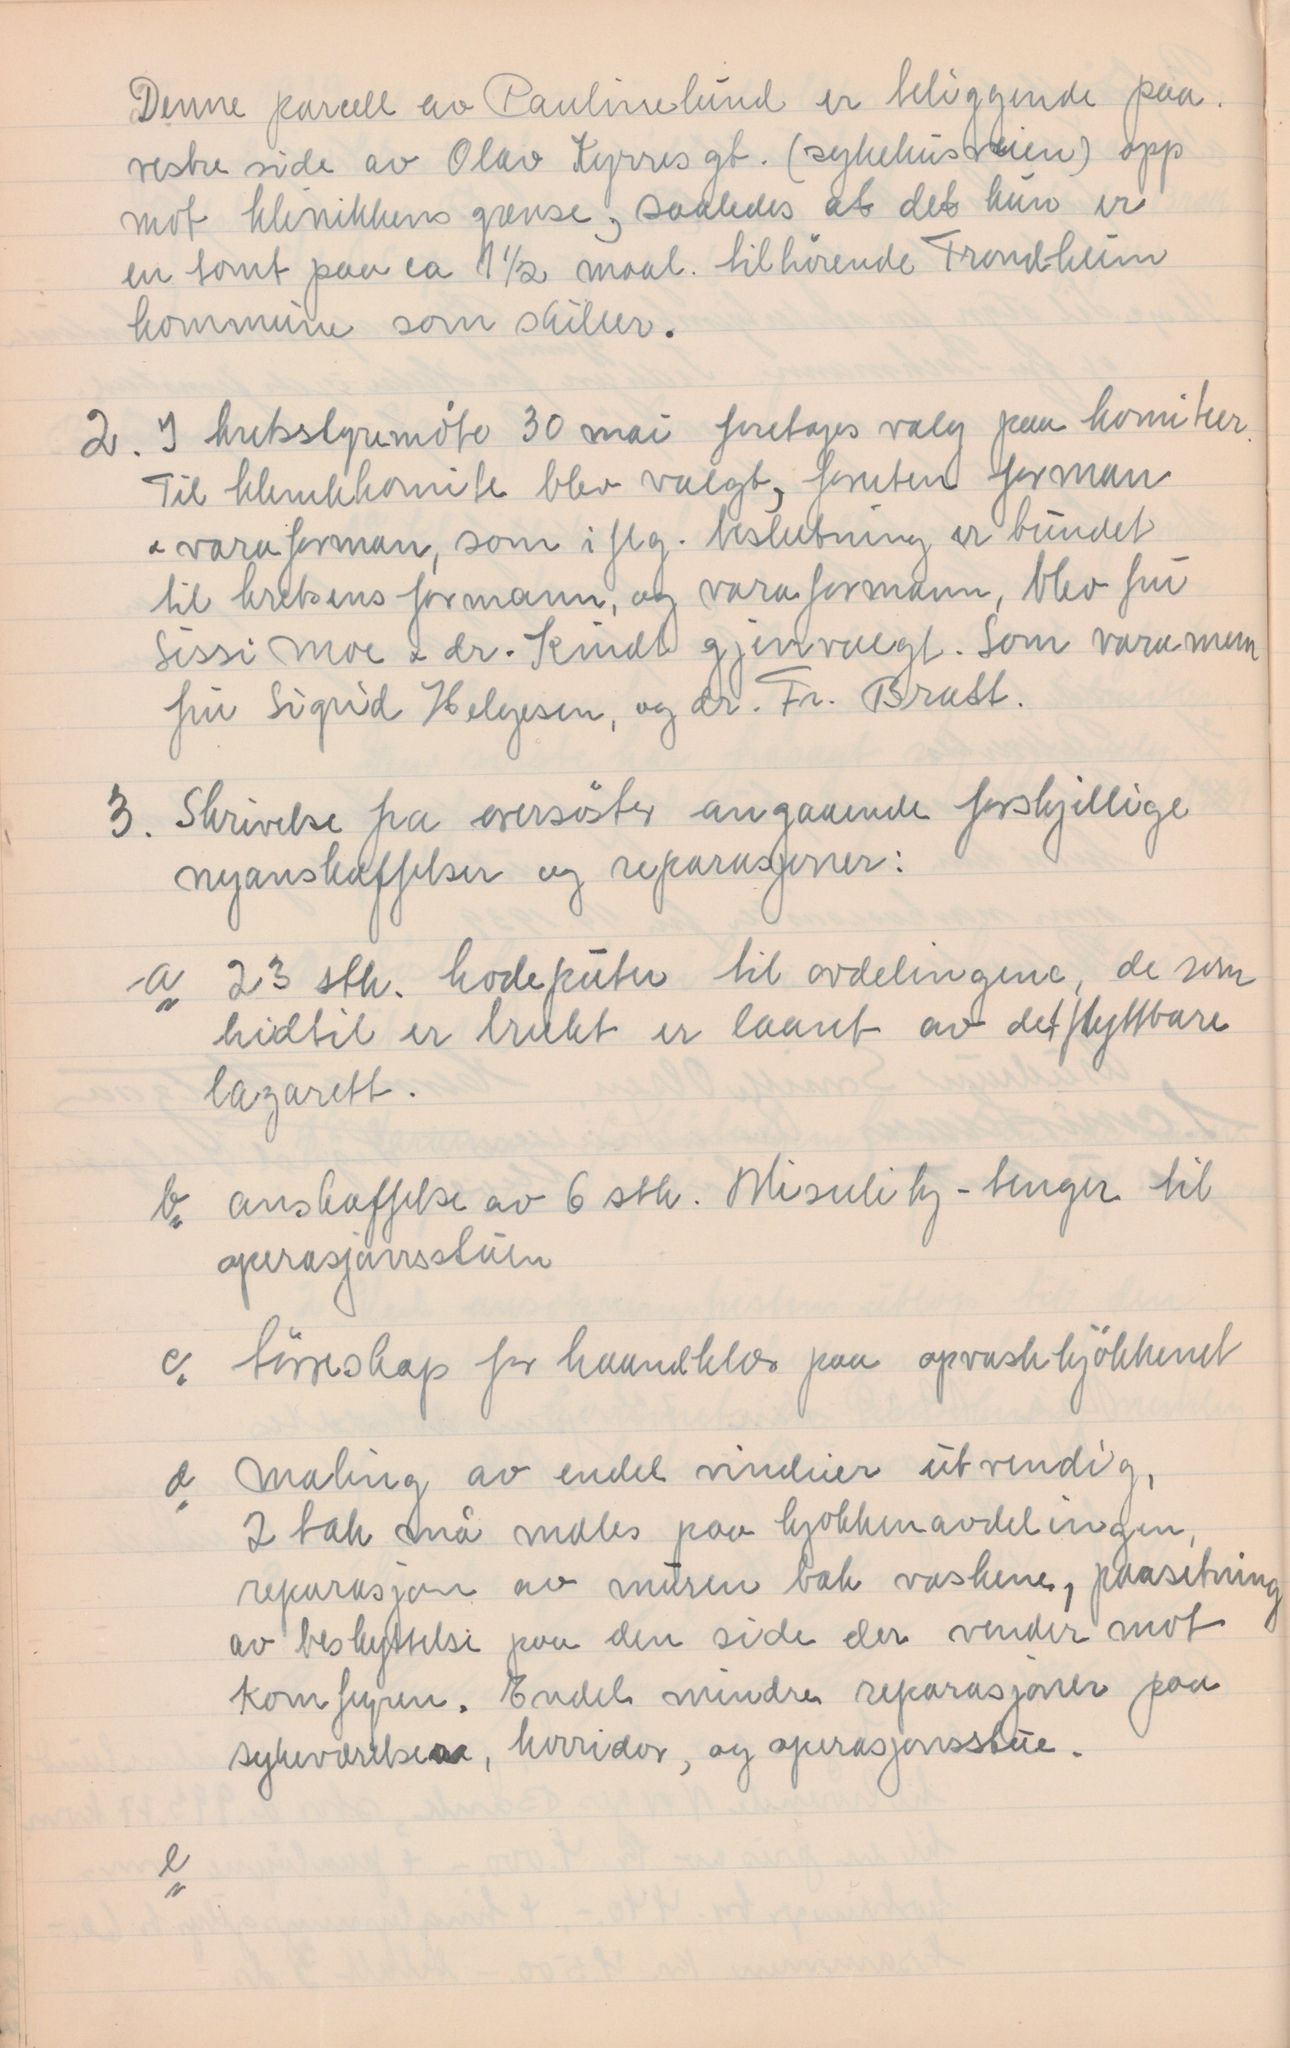 Denne parcell av Paulinelund er beliggende paa
vestre side av Olav Kyrres gt. (sykehusveien) opp
mot klinikkens grense, saaledes at det kun er
en tomt paa ca 1½ maal. tilhörende Trondheim
kommune som skiller.
2. I kretsstyremöte 30 mai foretages valg paa komiteer.
Til klinikkomite blev valgt, foruten forman
& varaforman, som iflg. beslutning er bundet
til kretsens formann, og varaformann, blev fru
Sissi Moe & dr. Kindt gjenvalgt. Som varamenn
fru Sigrid Helgesen, og dr. Fr. Bratt.
3. Skrivelse fra oversöster angaaende forskjellige
nyanskaffelser og reparasjoner:
a 23 stk. hodeputer til avdelingene, de som
hidtil er brukt er laant av det flyttbare
lazarett.
b. anskaffelse av 6 stk. -tenger til
operasjonsstuen
c. törreskap for haandklær paa opvaskkjökkenet
d. maling av endel vinduer utvendig,
2 tak må males paa kjøkkenavdelingen,
reparasjon av muren bak vaskene, paasetning
av beskyttelse paa den side der vender mot
komfyren. Endel mindre reparasjoner paa
sykeværelsene, korridor, og operasjonsstue.
e